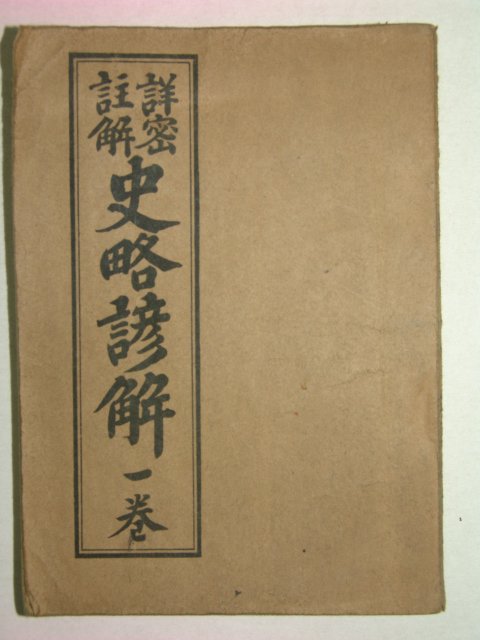 詳密
註解
史略諺解
一卷